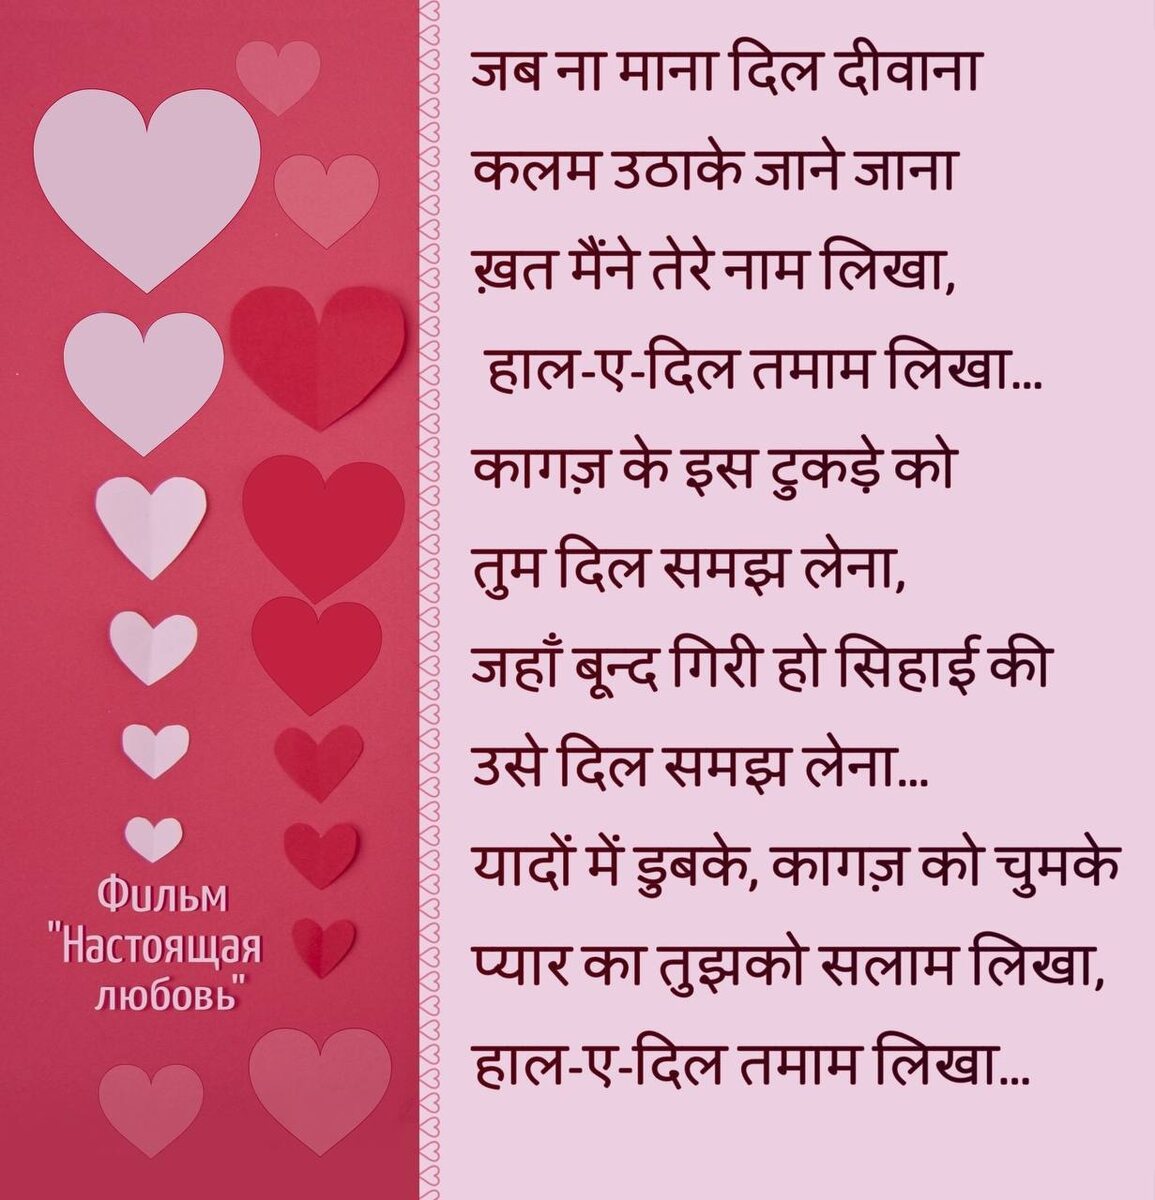 जब ना माना दिल दीवाना
कलम उठाके जाने जाना
ख़त मैंने तेरे नाम लिखा,
हाल-ए-दिल तमाम लिखा...
कागज़ के इस टुकड़े को
तुम दिल समझ लेना,
जहाँ बून्द गिरी हो सिहाई की
उसे दिल समझ लेना...
यादों में डुबके, कागज़ को चुमके
प्यार का तुझको सलाम लिखा,
हाल-ए-दिल तमाम लिखा...
Фильм
"Настоящая
любовь"